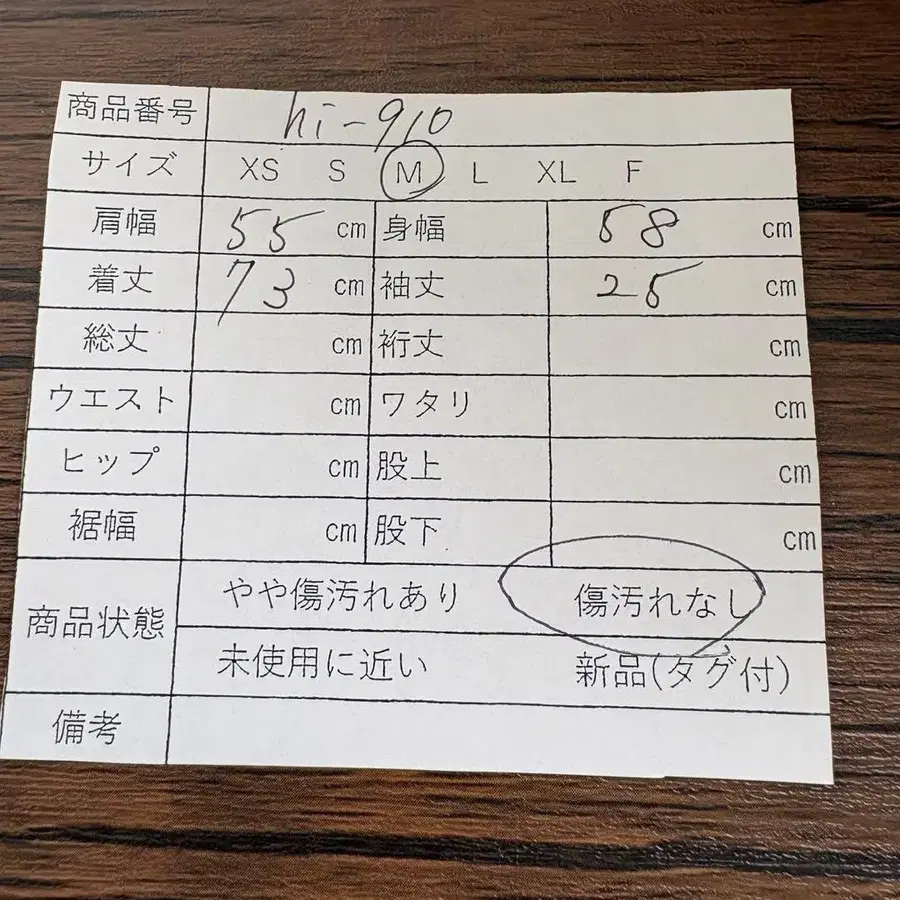 商品番号 hi-910
サイズ XS S M L XL F
肩幅 55 cm 身幅 58 cm
着丈 73 cm 袖丈 25 cm
総丈 cm 裄丈 cm
ウエスト cm ワタリ cm
ヒップ cm 股上 cm
裾幅 cm 股下 cm
商品状態 やや傷汚れあり 傷汚れなし
未使用に近い 新品(タグ付)
備考